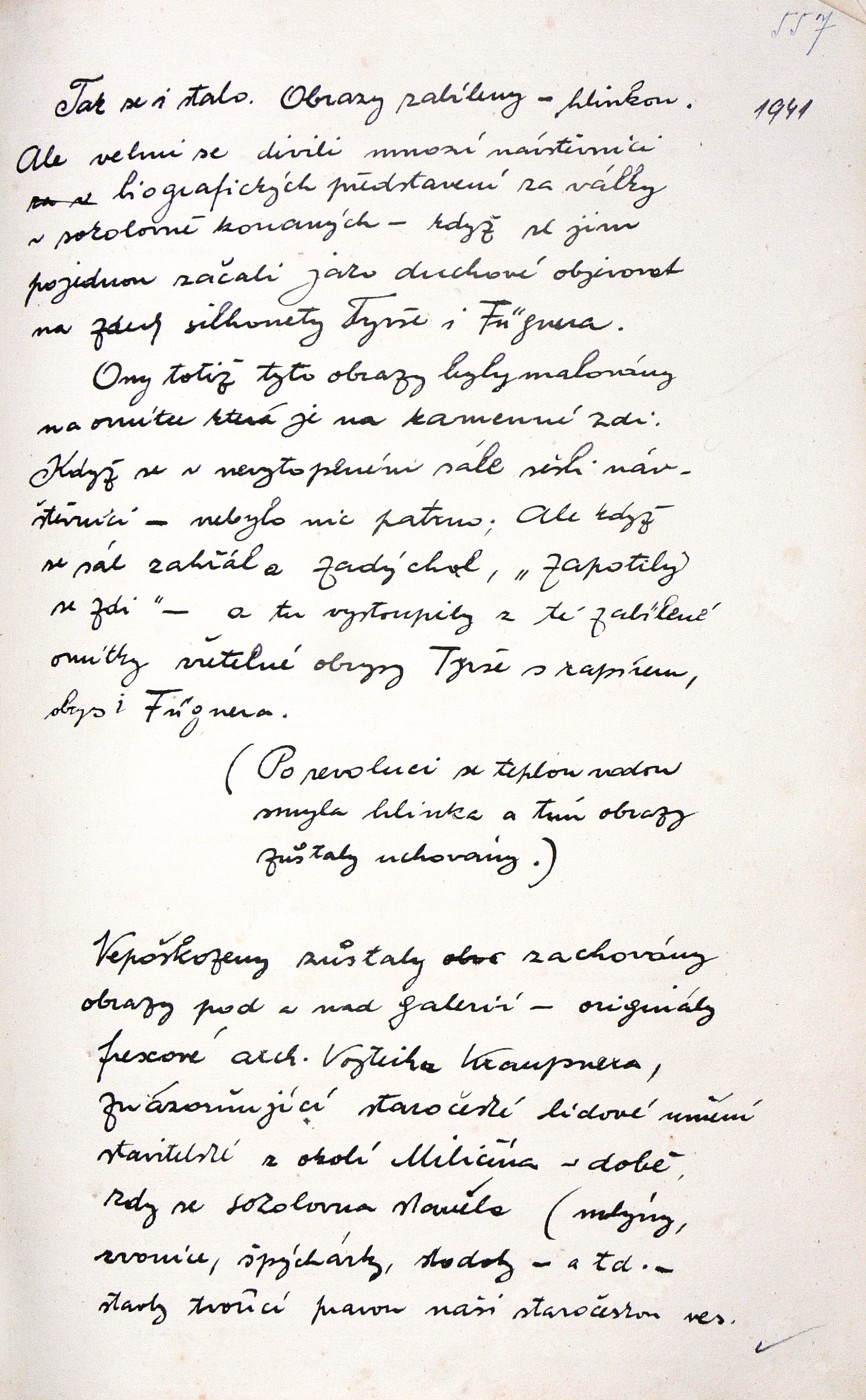 557
1941
Tak se i stalo. Obrazy zabíleny – hlinkou.
Ale velmi se divili mnozí návštěvníci
za v biografických představení za války
v sokolovně konaných – když se jim
pojednou začali jako duchové objevovat
na zdech silhouety Tyrše i Fügnera.
Ony totiž tyto obrazy byly malovány
na omítce která je na kamenné zdi.
Když se v nevytopeném sále sešli náv-
štěvníci – nebylo nic patrno; Ale když
se sál zahřál a zadýchal, „zapotily
se zdi“ – a tu vystoupily z té zabílené
omítky zřetelné obrysy Tyrše s rapírem,
obrys i Fügnera.
(Po revoluci se teplou vodou
smyla hlinka a tím obrazy
zůstaly uchovány.)
Nepoškozeny zůstaly obr zachovány
obrazy pod a nad galerií – originály
freskové arch. Vojtěcha Kraupnera,
znázorňující staročeské lidové umění
stavitelské z okolí Miličína v době,
kdy se sokolovna stavěla (mlýny,
zvonice, špýchárky, stodoly – a td. –
stavby tvořící pravou naši staročeskou ves.